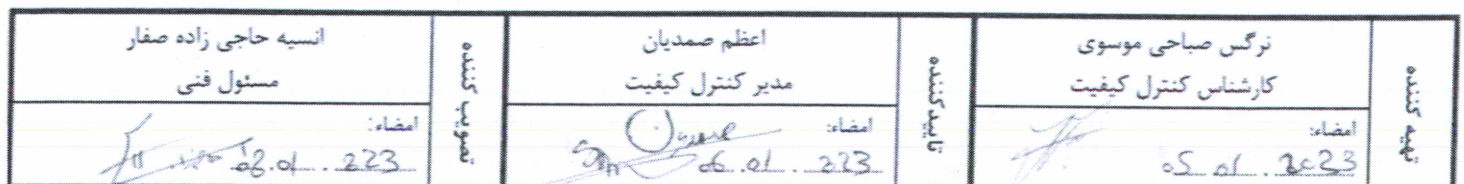 تهیه کننده
نرگس صباحی موسوی
کارشناس کنترل کیفیت
امضاء:
05.01.2023
تاییدکننده
اعظم صمدیان
مدیر کنترل کیفیت
امضاء:
تصویب کننده
انسیه حاجی زاده صفار
مسئول فنی
امضاء: